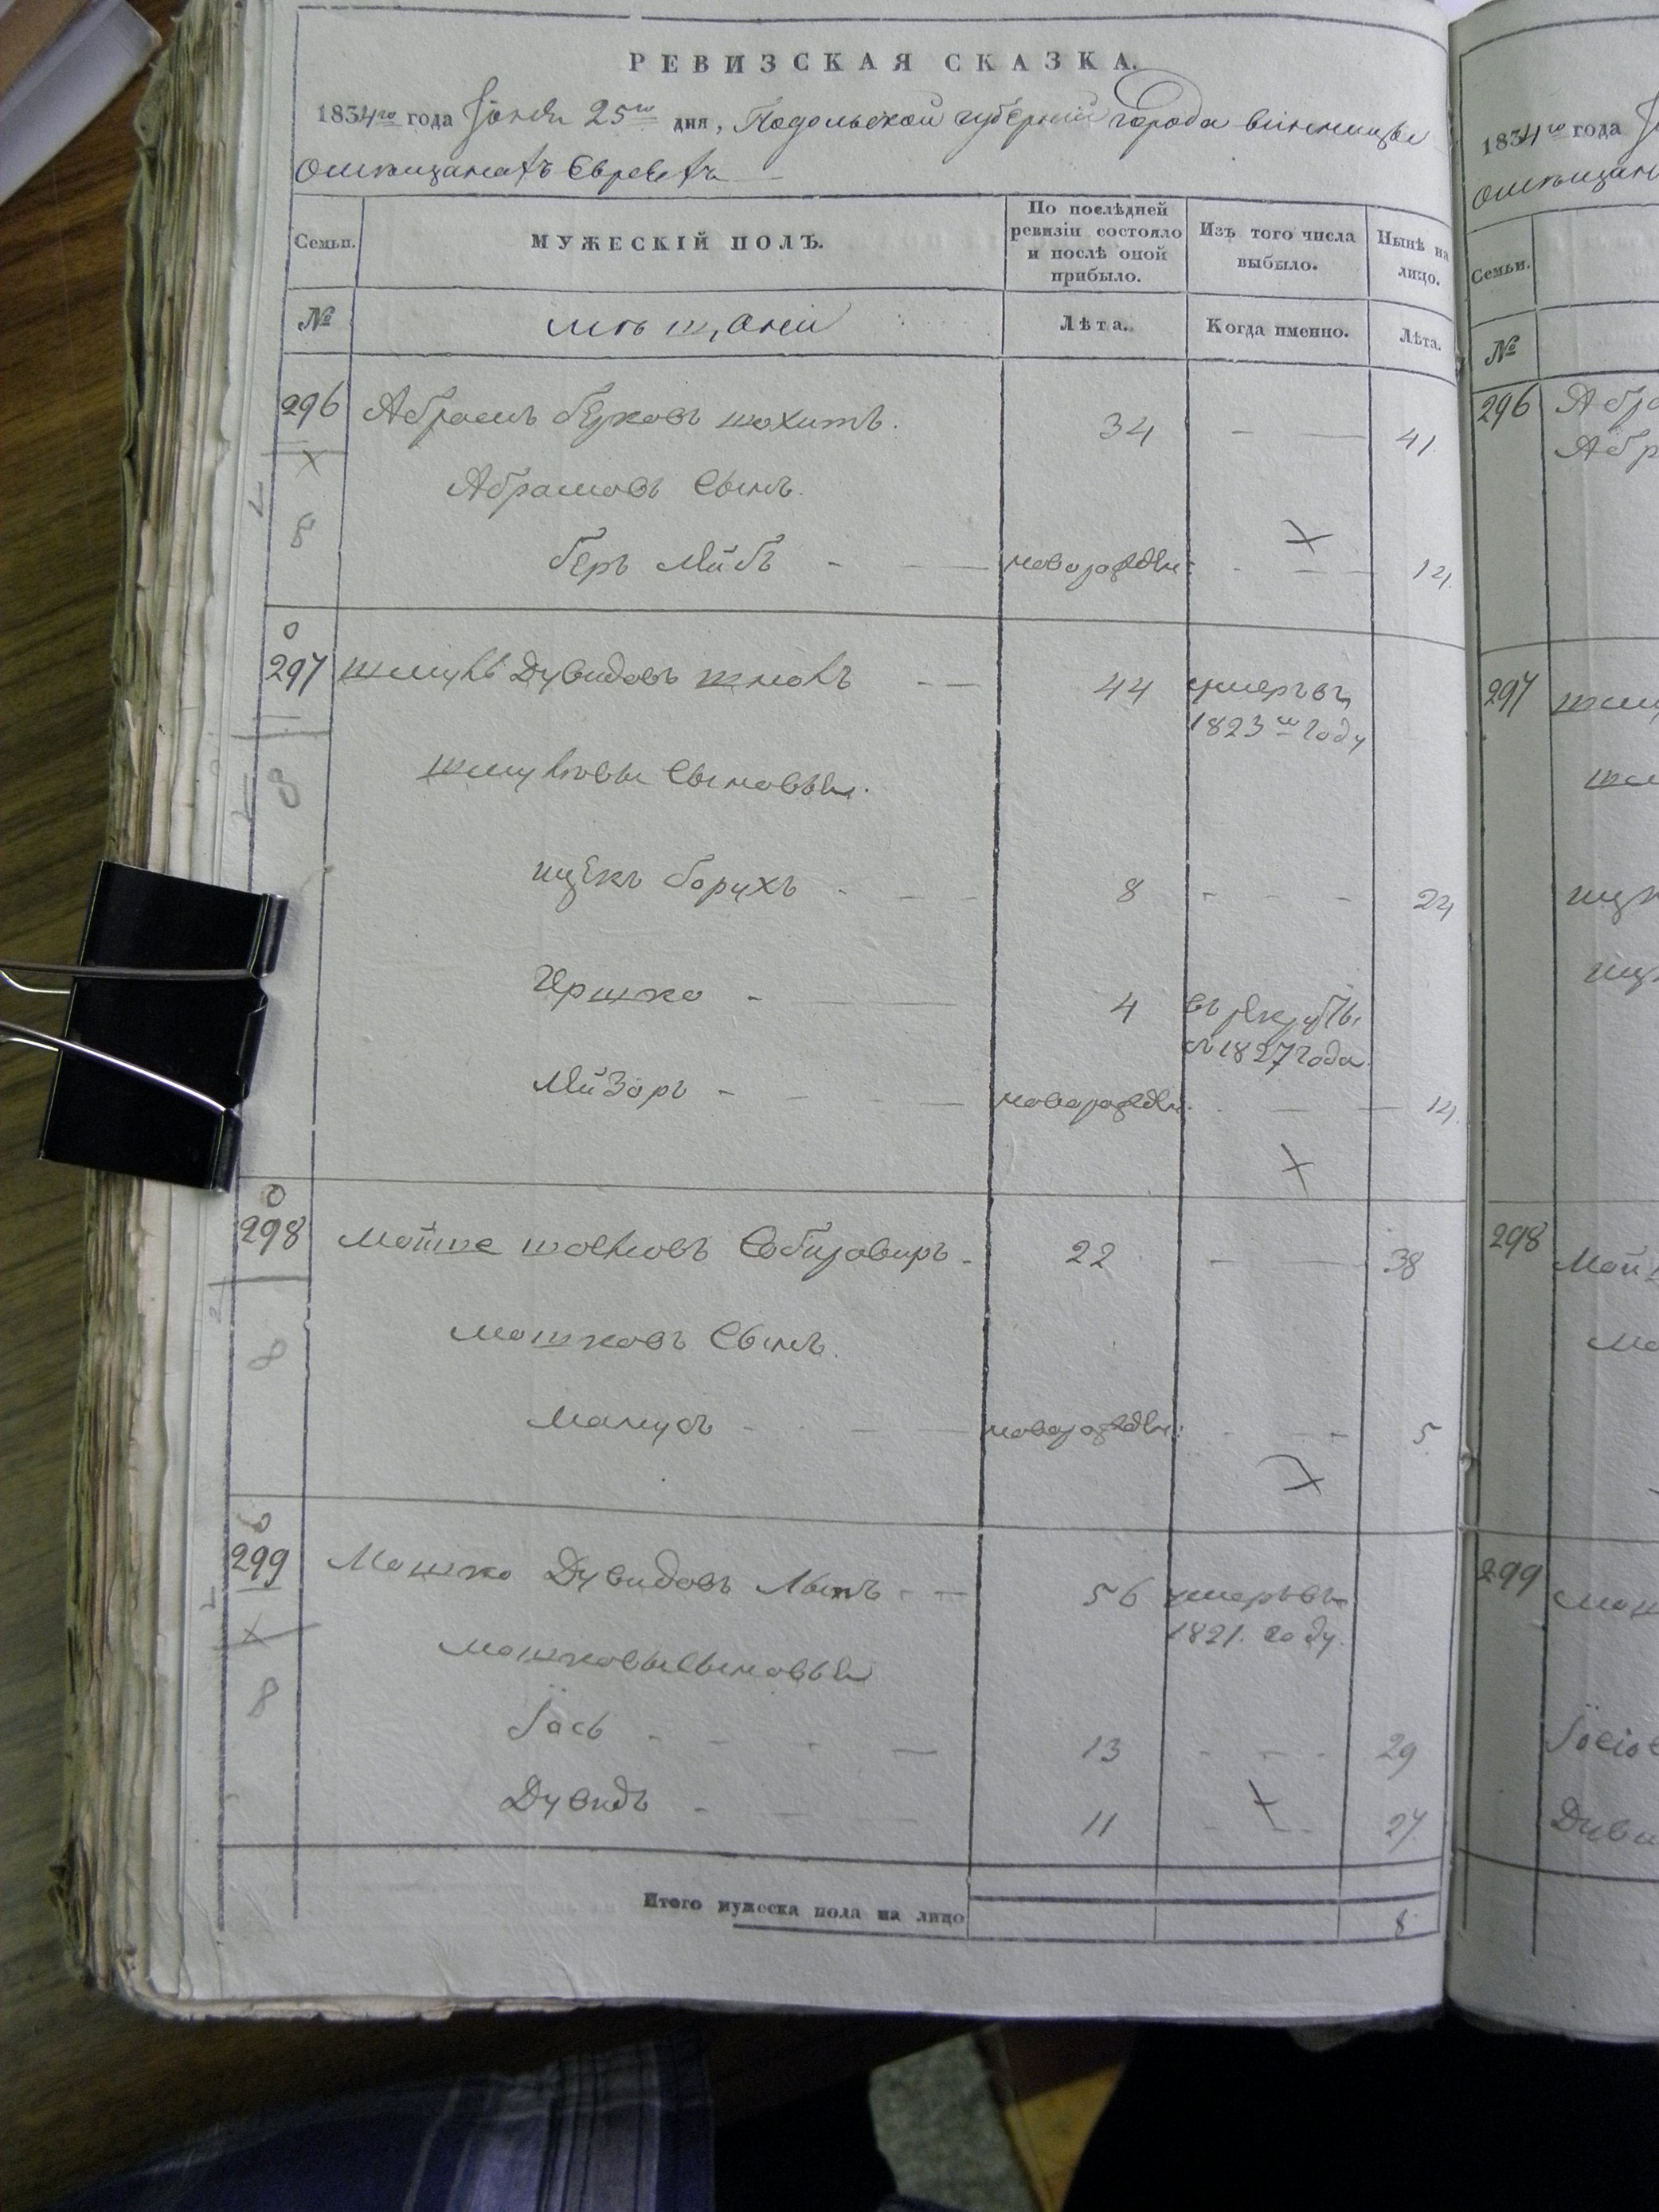 РЕВИЗСКАЯ СКАЗКА.
1834го года Іюня 25го дня, Подольской губерніи города винницы
Омещанахъ Евреяхъ
Семьи.
МУЖЕСКІЙ ПОЛЪ.
По послѣдней ревизіи состояло и послѣ оной прибыло.
Изъ того числа выбыло.
Нынѣ на лицо.
№
мещане
Лѣта.
Когда именно.
Лѣта.
296 Абрамъ берковъ шохитъ. 34 — — 41
Абрамовъ Сынъ.
8
беръ Лейбъ - — — новорожден: - — — 14
297 шмуль Дувидовъ - — 44 умеръвъ
1823м году
шмулювы Сыновья.
8
ицекъ борухъ - — — 8 - - - 24
Гершко - — — 4 въ рекруты
съ 1827 года
Лейзоръ - - - — новорожден: - — — 14
298 Мошке 22 — — 38
мошковъ Сынъ.
8
Манусъ - - — — новорожден: - - - 5
299 Мошко Дувидовъ - — 56 умеръвъ
1821. году.
мошковысыновья
8
Іось - - - — 13 - - - 29
Дувидъ - — — 11 - - - 27
Итого мужеска пола на лицо 8
1834го года
омещан
Семьи.
№
296 Абра
Абр
297 шму
шм
ицк
298 Мош
мо
299 мош
Дуви